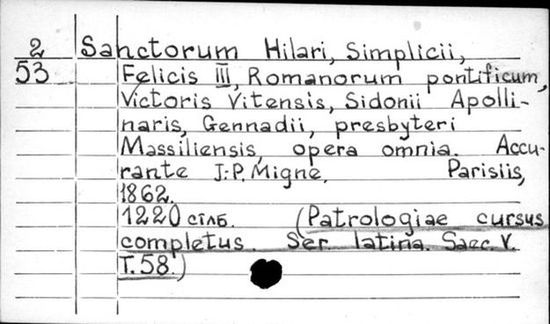 2 Sanctorum Hilari, Simplicii,
53 Felicis III, Romanorum pontificum,
Victoris Vitensis, Sidonii Apolli-
naris, Gennadii, presbyteri
Massiliensis, opera omnia. Accu-
rante J.-P. Migne. Parisiis,
1862.
1220 стлб. (Patrologiae cursus
completus. Ser. latina. Saec. V.
T. 58.)